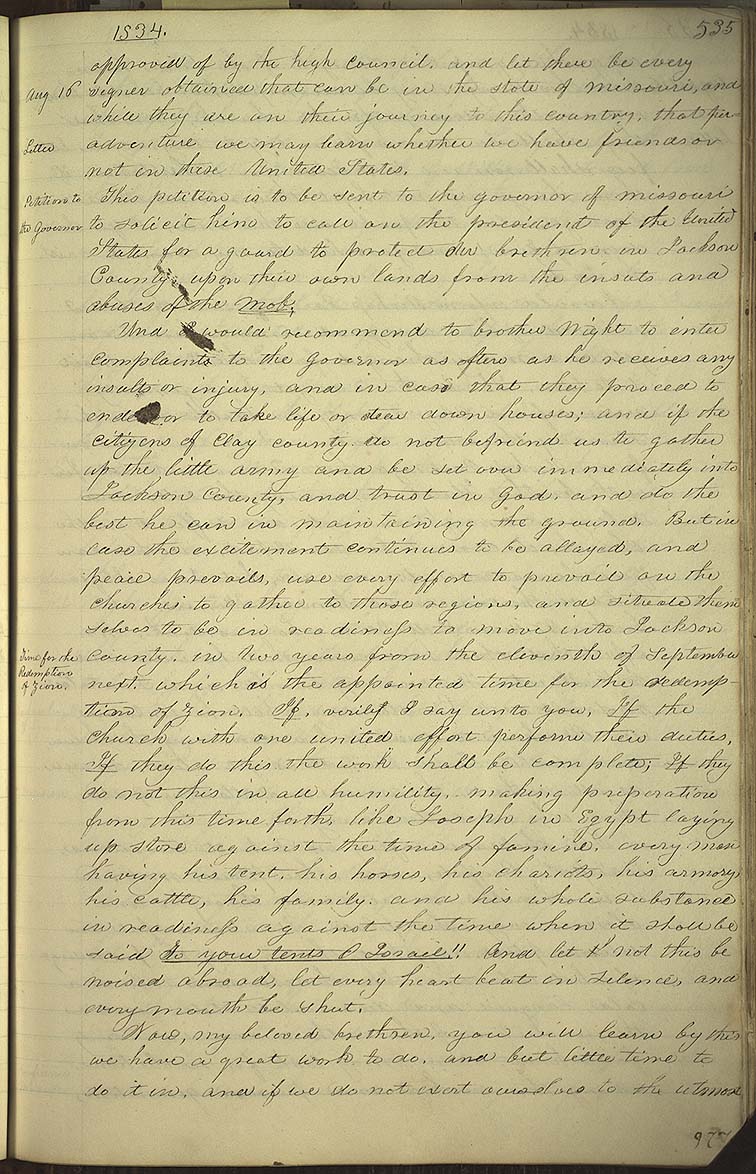 1834.
535
approved of by the high council. and let there be every
Aug 16 signer obtained that can be in the state of missouri, and
while they are on their journey to this country, that per=
Letter adventure we may learn whether we have friends or
not in these United States.
Petition to This petition is to be sent to the governor of missouri
the Governor to solicit him to call on the president of the United
States for a guard to protect our brethren in Jackson
County, upon their own lands from the insuts and
abuses of the mob;
And I would recommend to brother Wight to enter
complaints to the governor as often as he receives any
insults or injury, and in case that they proceed to
endeavor to take life or tear down houses; and if the
citizens of Clay county do not befriend us to gather
up the little army and be set over immediately into
Jackson County, and trust in God, and do the
best he can in maintaining the ground. But in
case the excitement continues to be allayed, and
peace prevails, use every effort to prevail on the
churches to gather to those regions, and situate them
selves to be in readiness to move into Jackson
Time for the Redemption of Zion. county. in two years from the eleventh of September
next. which is the appointed time for the redemp-
tion of Zion. If, verily I say unto you, If the
church with one united effort perform their duties,
If they do this the work shall be complete; If they
do not this in all humility, making preparation
from this time forth, like Joseph in Egypt laying
up store against the time of famine, every man
having his tent, his horses, his chariots, his armory,
his cattle, his family. and his whole substance
in readiness against the time when it shall be
said To your tents O Israel!! And let not this be
noised abroad, let every heart beat in silence, and
every mouth be shut.
Now, my beloved brethren, you will learn by this
we have a great work to do, and but little time to
do it in, and if we do not exert ourselves to the utmost
977